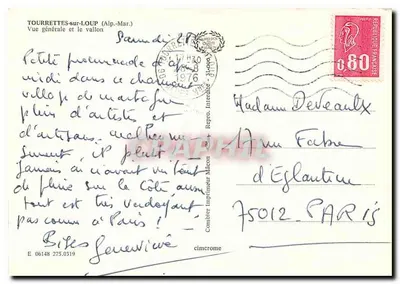 TOURRETTES-sur-LOUP (Alp.-Mar.)
Vue générale et le vallon
Samedi 28
Petite promenade d'après
midi dans ce charmant
village de montagne
plein d'artistes et
d'artisans malheureu-
sement, il pleut
jamais ai-
de pluie sur la Côte aussi
tout est très verdoyant
pas comme à Paris !
Bises
Geneviève
E 06148 275.0319
cimcrome
Combier Imprimeur Mâcon
1976
0,80
Madame Deveaulx
17 rue Fabre
d'Eglantine
75012 PARIS